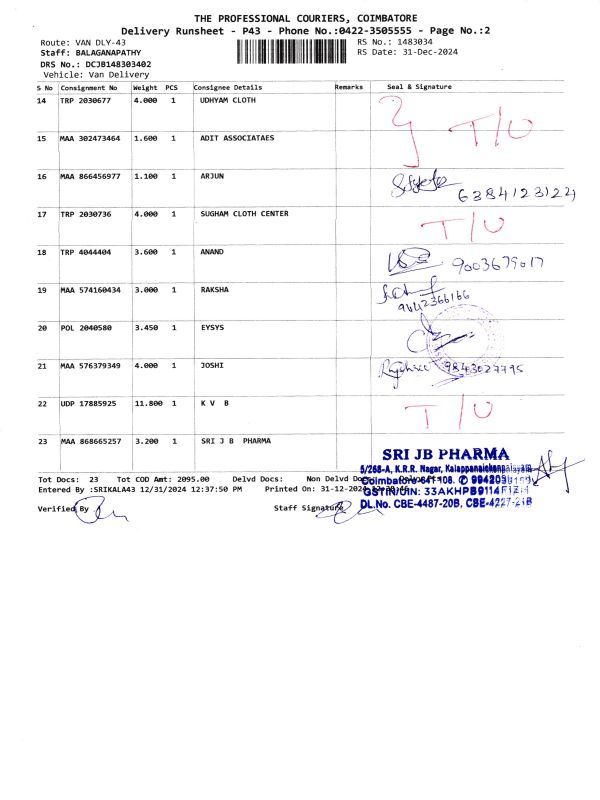 THE PROFESSIONAL COURIERS, COIMBATORE
Delivery Runsheet - P43 - Phone No.:0422-3505555 - Page No.:2
Route: VAN DLY-43 RS No.: 1483034
Staff: BALAGANAPATHY RS Date: 31-Dec-2024
DRS No.: DCJB148303402
Vehicle: Van Delivery
S No Consignment No Weight PCS Consignee Details Remarks Seal & Signature
14 TRP 2030677 4.000 1 UDHYAM CLOTH T/U
15 MAA 302473464 1.600 1 ADIT ASSOCIATAES
16 MAA 866456977 1.100 1 ARJUN 6384123124
17 TRP 2030736 4.000 1 SUGHAM CLOTH CENTER T/U
18 TRP 4044404 3.600 1 ANAND 9003679017
19 MAA 574160434 3.000 1 RAKSHA 9642366166
20 POL 2040580 3.450 1 EYSYS
21 MAA 576379349 4.000 1 JOSHI 9843027795
22 UDP 17885925 11.800 1 K V B T/U
23 MAA 868665257 3.200 1 SRI J B PHARMA
SRI JB PHARMA
5/268-A, K.R.R. Nagar, Kalappanaickenpalayam
Coimbatore-641 108.
GSTIN/UIN: 33AKHPB9114F1ZH
DL.No. CBE-4487-20B, CBE-4227-21B
Tot Docs: 23 Tot COD Amt: 2095.00 Delvd Docs: Non Delvd Docs:
Entered By :SRIKALA43 12/31/2024 12:37:50 PM Printed On: 31-12-2024
Verified By Staff Signature